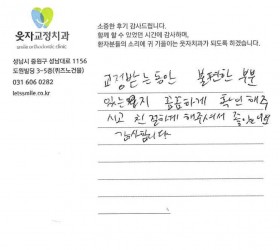 웃자교정치과
smile orthodontic clinic
성남시 중원구 성남대로 1156
도원빌딩 3~5층(위즈노건물)
031 606 0282
letssmile.co.kr
소중한 후기 감사드립니다.
함께 할 수 있었던 시간에 감사하며,
환자분들의 소리에 귀 기울이는 웃자치과가 되도록 하겠습니다.
교정받는동안 불편한 부분
있는지 꼼꼼하게 확인해주
시고 친절하게 해주셔서 좋았네요
감사합니다